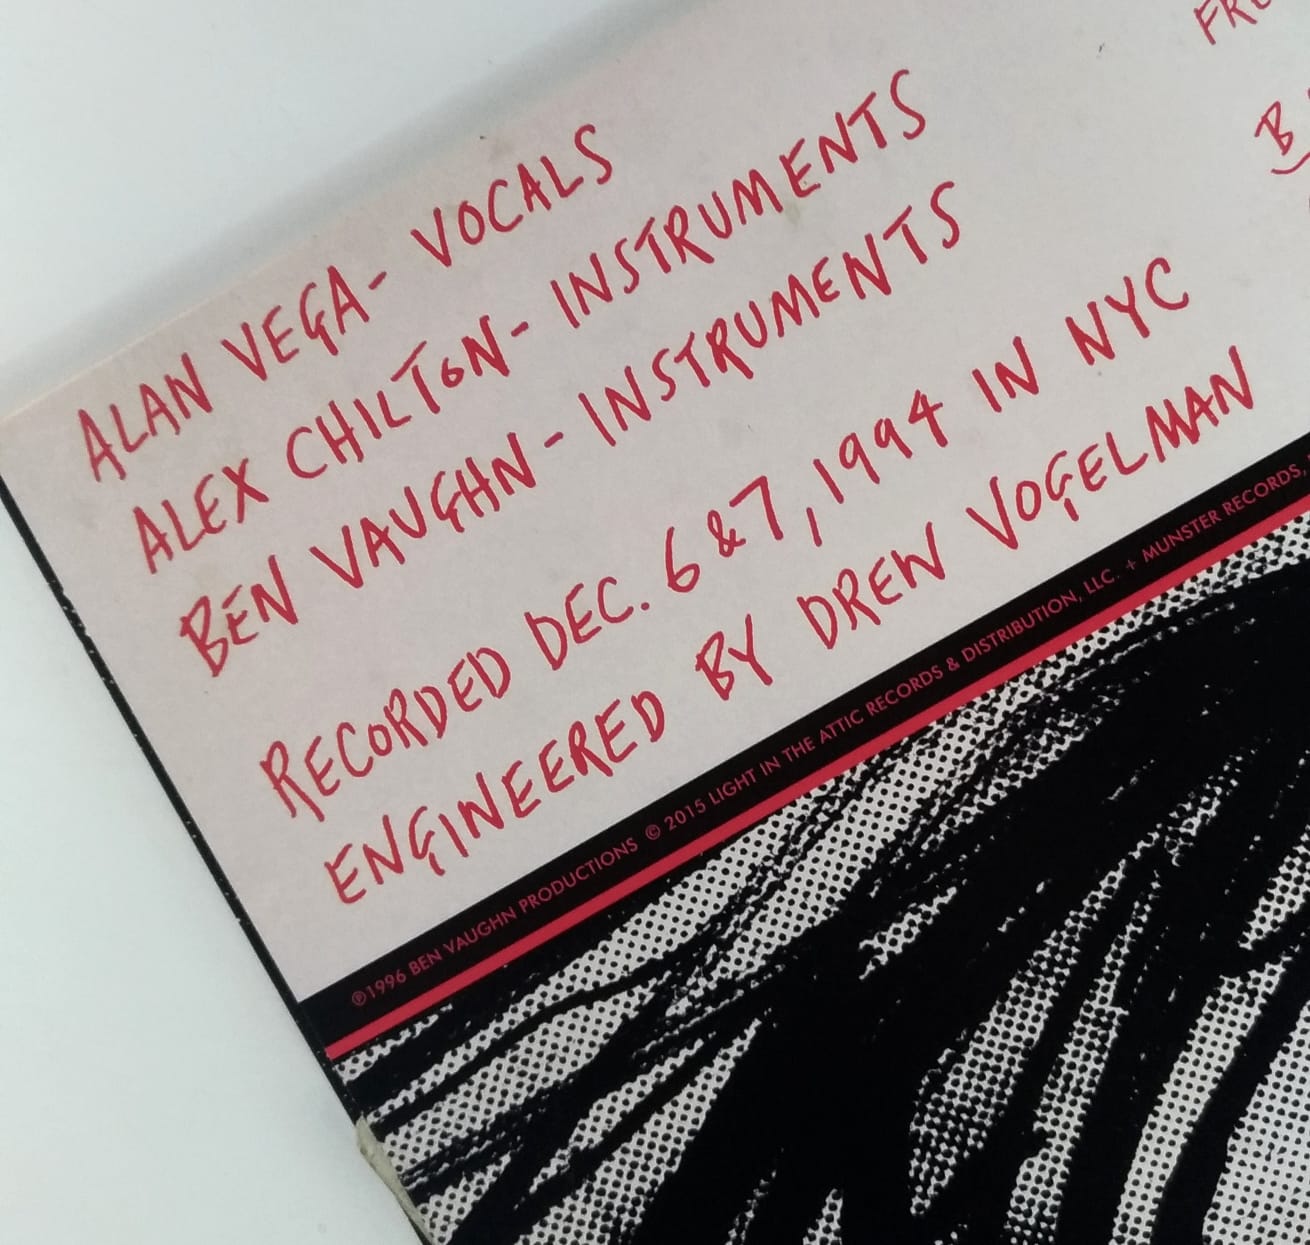 ALAN VEGA- VOCALS
ALEX CHILTON- INSTRUMENTS
BEN VAUGHN- INSTRUMENTS
RECORDED DEC. 6 & 7, 1994 IN NYC
ENGINEERED BY DREW VOGELMAN
℗1996 BEN VAUGHN PRODUCTIONS © 2015 LIGHT IN THE ATTIC RECORDS & DISTRIBUTION, LLC. + MUNSTER RECORDS,